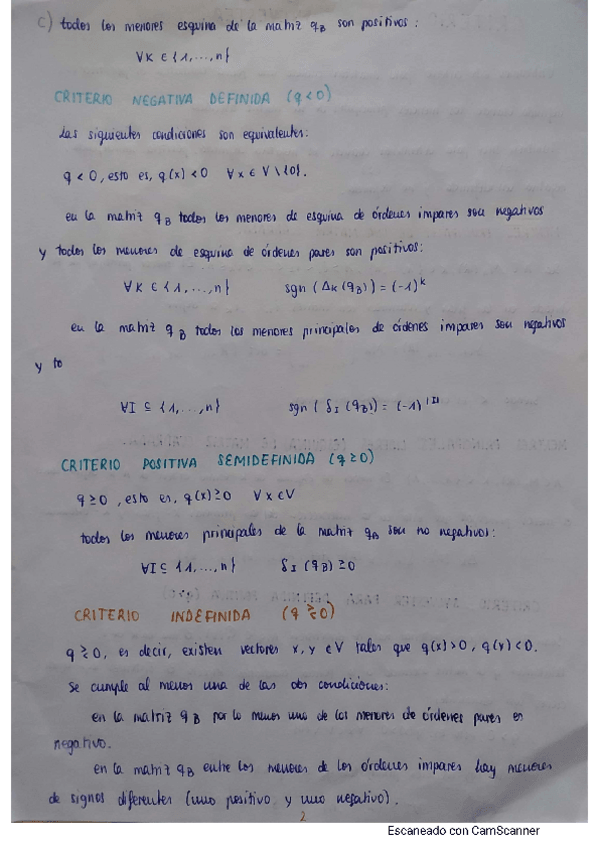 c) todos los menores esquina de la matriz q_B son positivos:
∀K ∈ {1,...,n}
CRITERIO NEGATIVA DEFINIDA (q<0)
Las siguientes condiciones son equivalentes:
q < 0, esto es, q(x) < 0 ∀x ∈ V \ {0}.
en la matriz q_B todos los menores de esquina de órdenes impares son negativos
y todos los menores de esquina de órdenes pares son positivos:
∀K ∈ {1,...,n} sgn (Δ_K (q_B)) = (-1)^k
en la matriz q_B todos los menores principales de órdenes impares son negativos
y to
∀I ⊆ {1,...,n} sgn (δ_I (q_B)) = (-1)^|I|
CRITERIO POSITIVA SEMIDEFINIDA (q≥0)
q ≥ 0, esto es, q(x) ≥ 0 ∀x ∈ V
todos los menores principales de la matriz q_B son no negativos:
∀I ⊆ {1,...,n} δ_I (q_B) ≥ 0
CRITERIO INDEFINIDA (q ≷ 0)
q ≷ 0, es decir, existen vectores x, y ∈ V tales que q(x) > 0, q(y) < 0.
Se cumple al menos una de las dos condiciones:
en la matriz q_B por lo menos uno de los menores de órdenes pares es
negativo.
en la matriz q_B entre los menores de los órdenes impares hay menores
de signos diferentes (uno positivo y uno negativo).
2
Escaneado con CamScanner